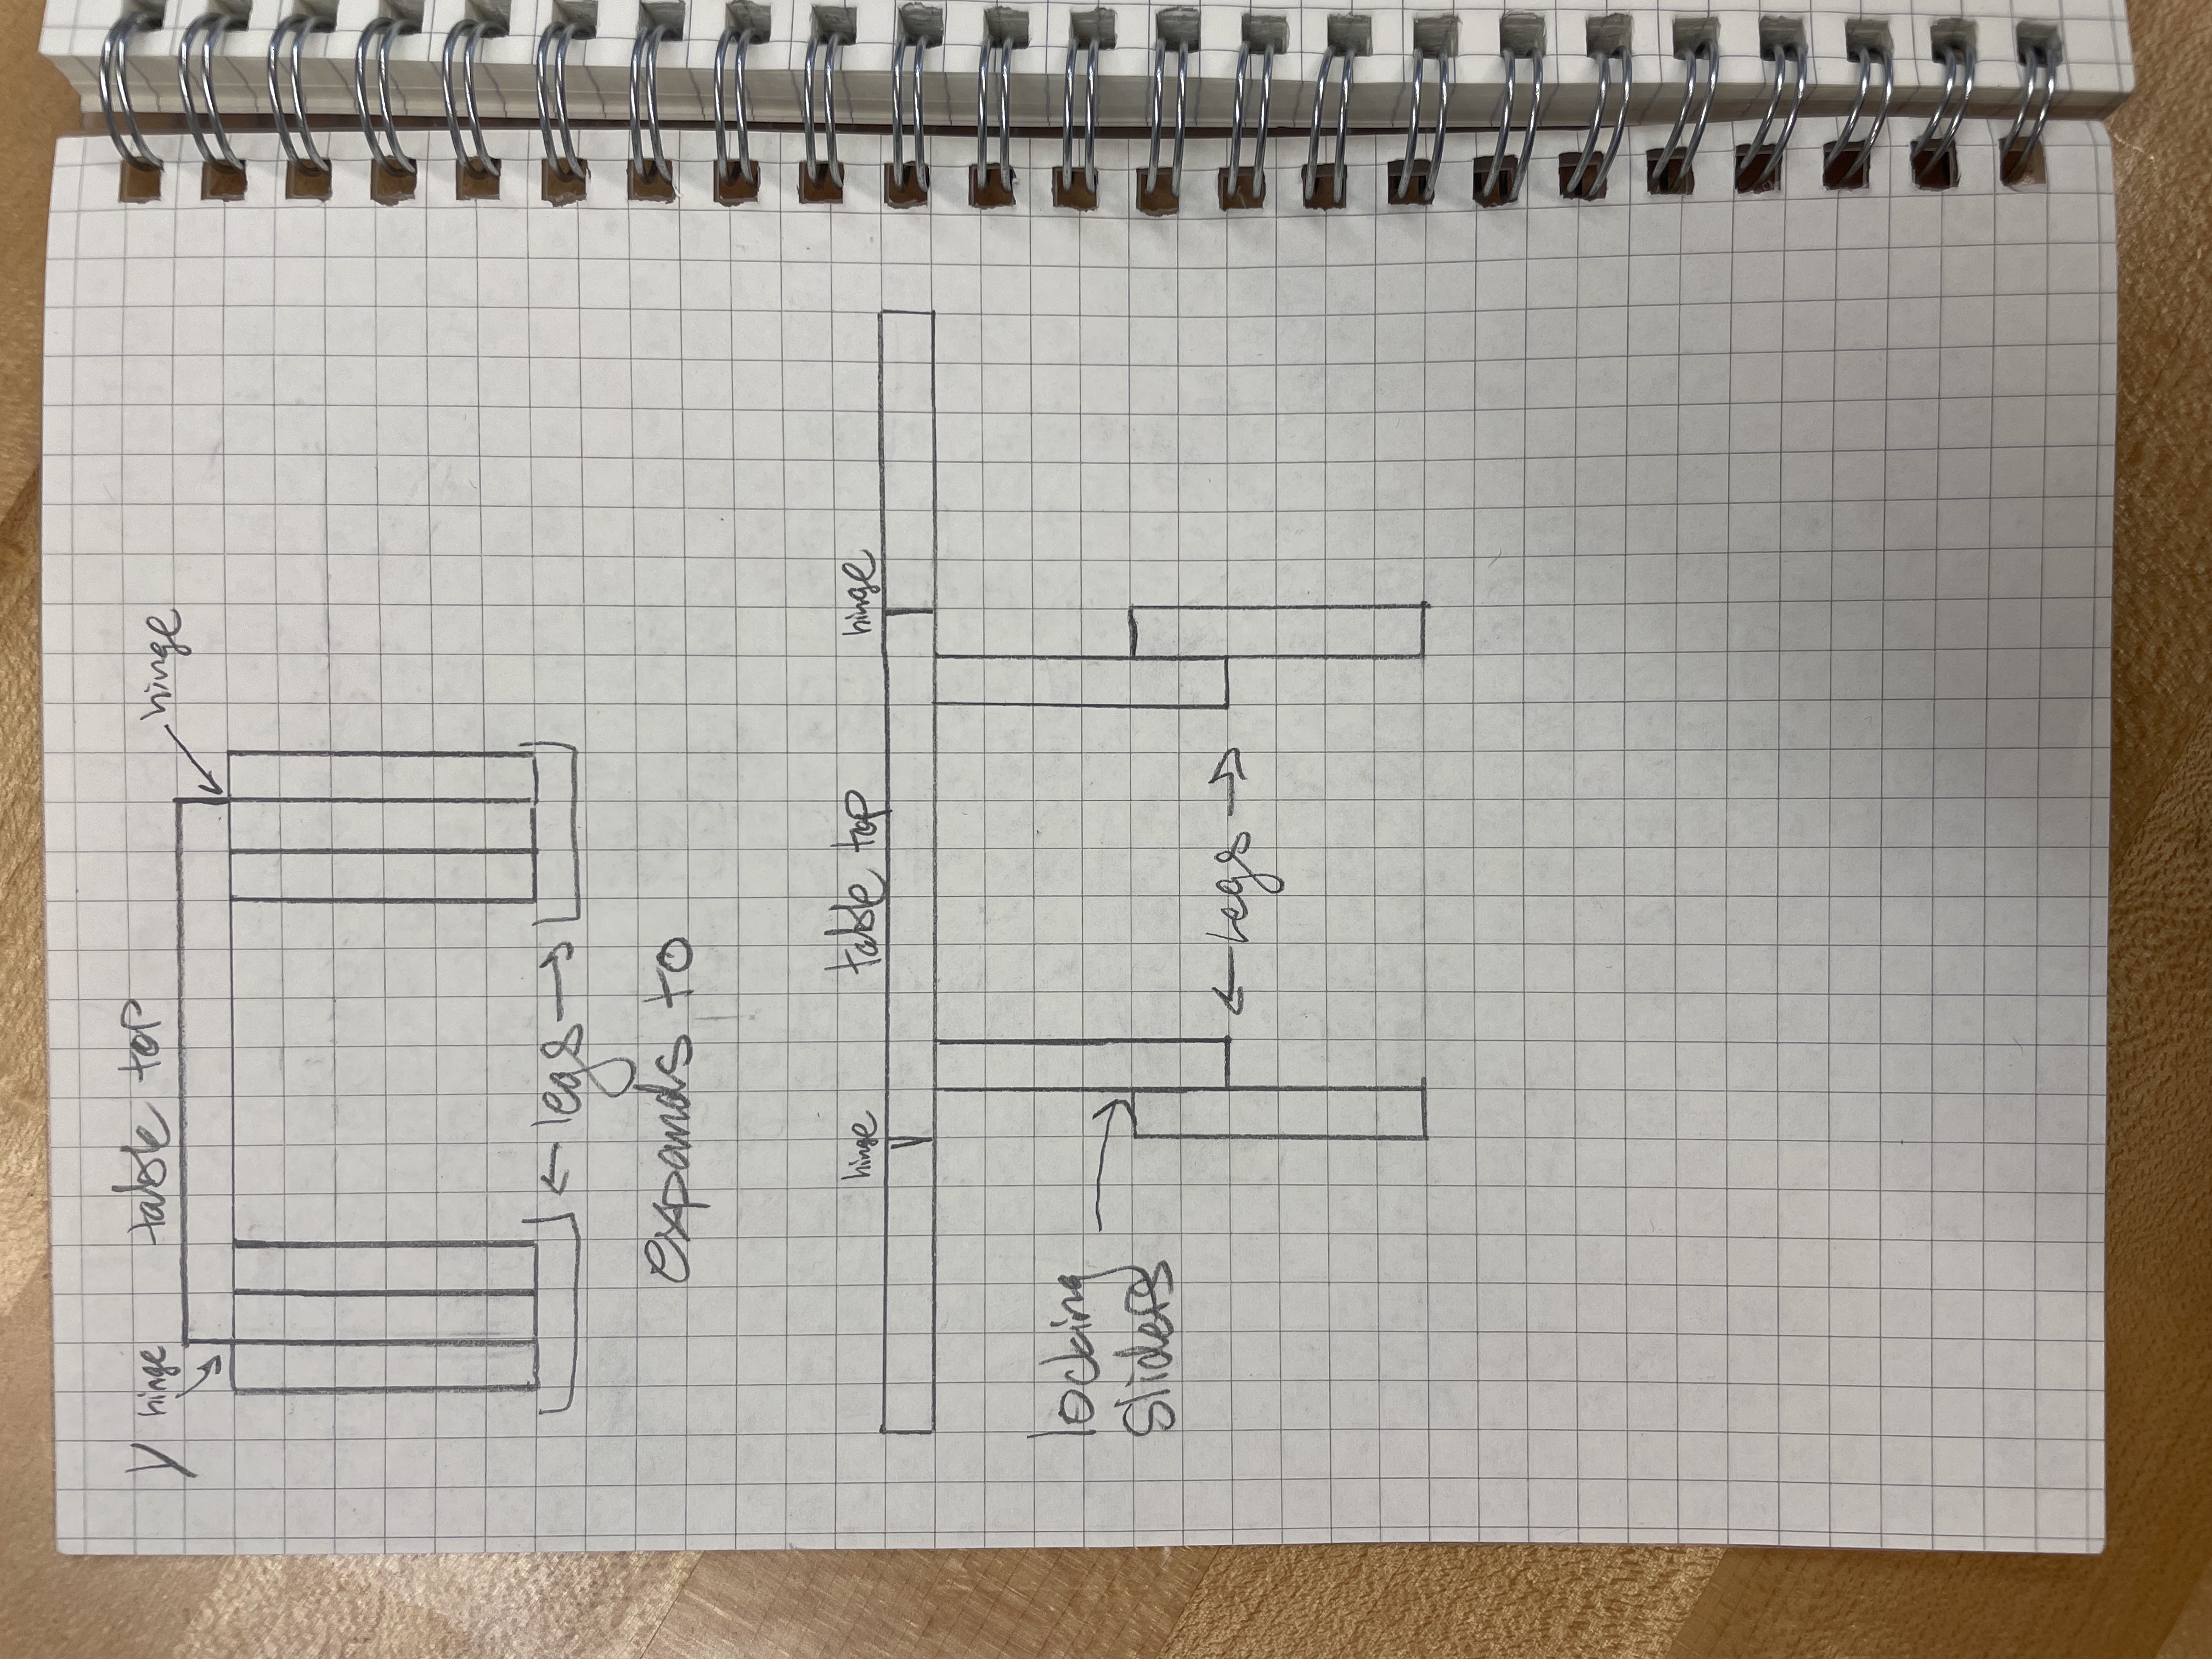 Y hinge table top hinge
← legs →
expands to
hinge table top hinge
locking
sliders
← Legs →